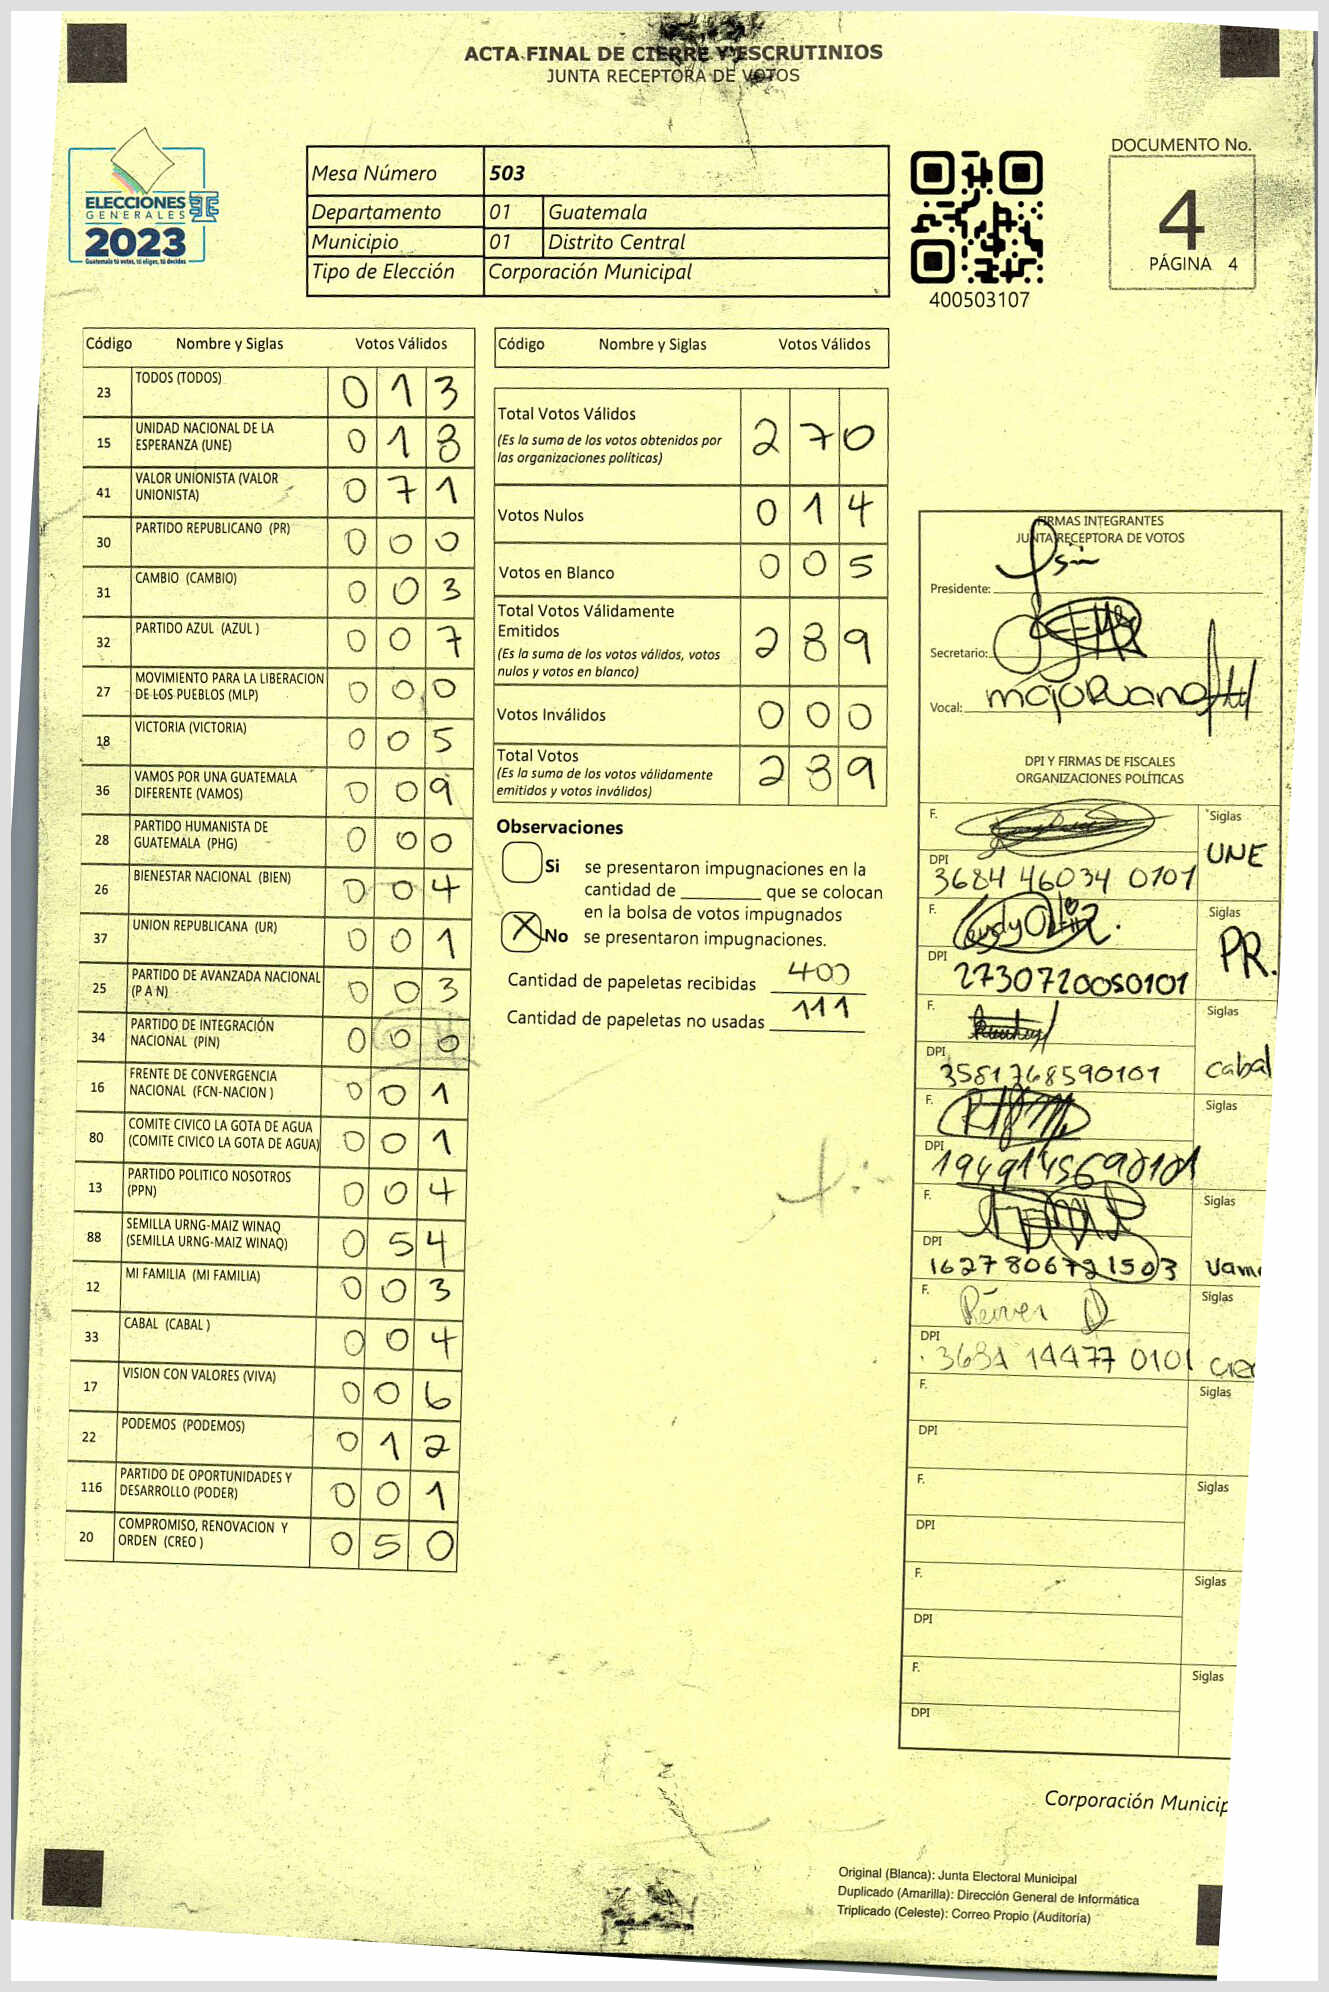 ACTA FINAL DE CIERRE Y ESCRUTINIOS
JUNTA RECEPTORA DE VOTOS
ELECCIONES
GENERALES
2023
Guatemala tú votes, tú eliges, tú decides
Mesa Número 503
Departamento 01 Guatemala
Municipio 01 Distrito Central
Tipo de Elección Corporación Municipal
400503107
DOCUMENTO No.
4
PÁGINA 4
Código Nombre y Siglas Votos Válidos
23 TODOS (TODOS) 0 1 3
15 UNIDAD NACIONAL DE LA ESPERANZA (UNE) 0 1 8
41 VALOR UNIONISTA (VALOR UNIONISTA) 0 7 1
30 PARTIDO REPUBLICANO (PR) 0 0 0
31 CAMBIO (CAMBIO) 0 0 3
32 PARTIDO AZUL (AZUL ) 0 0 7
27 MOVIMIENTO PARA LA LIBERACION DE LOS PUEBLOS (MLP) 0 0 0
18 VICTORIA (VICTORIA) 0 0 5
36 VAMOS POR UNA GUATEMALA DIFERENTE (VAMOS) 0 0 9
28 PARTIDO HUMANISTA DE GUATEMALA (PHG) 0 0 0
26 BIENESTAR NACIONAL (BIEN) 0 0 4
37 UNION REPUBLICANA (UR) 0 0 1
25 PARTIDO DE AVANZADA NACIONAL (P A N) 0 0 3
34 PARTIDO DE INTEGRACIÓN NACIONAL (PIN) 0 0 0
16 FRENTE DE CONVERGENCIA NACIONAL (FCN-NACION ) 0 0 1
80 COMITE CIVICO LA GOTA DE AGUA (COMITE CIVICO LA GOTA DE AGUA) 0 0 1
13 PARTIDO POLITICO NOSOTROS (PPN) 0 0 4
88 SEMILLA URNG-MAIZ WINAQ (SEMILLA URNG-MAIZ WINAQ) 0 5 4
12 MI FAMILIA (MI FAMILIA) 0 0 3
33 CABAL (CABAL ) 0 0 4
17 VISION CON VALORES (VIVA) 0 0 6
22 PODEMOS (PODEMOS) 0 1 2
116 PARTIDO DE OPORTUNIDADES Y DESARROLLO (PODER) 0 0 1
20 COMPROMISO, RENOVACION Y ORDEN (CREO ) 0 5 0
Código Nombre y Siglas Votos Válidos
Total Votos Válidos 2 7 0
(Es la suma de los votos obtenidos por
las organizaciones políticas)
Votos Nulos 0 1 4
Votos en Blanco 0 0 5
Total Votos Válidamente
Emitidos 2 8 9
(Es la suma de los votos válidos, votos
nulos y votos en blanco)
Votos Inválidos 0 0 0
Total Votos 2 8 9
(Es la suma de los votos válidamente
emitidos y votos inválidos)
Observaciones
Si se presentaron impugnaciones en la
cantidad de ________ que se colocan
en la bolsa de votos impugnados
X No se presentaron impugnaciones.
Cantidad de papeletas recibidas 400
Cantidad de papeletas no usadas 111
FIRMAS INTEGRANTES
JUNTA RECEPTORA DE VOTOS
Presidente:
Secretario:
Vocal:
DPI Y FIRMAS DE FISCALES
ORGANIZACIONES POLÍTICAS
F. Siglas
UNE
DPI 3684 46034 0101
F. Siglas
PR.
DPI 2730720050101
F. Siglas
cabal
DPI 3581768590101
F. Siglas
DPI 1949145690101
F. Siglas
DPI 1627806721503 Vam
F. Siglas
DPI 3684 14477 0101 Creo
F. Siglas
DPI
F. Siglas
DPI
F. Siglas
DPI
F. Siglas
DPI
Corporación Municip
Original (Blanca): Junta Electoral Municipal
Duplicado (Amarilla): Dirección General de Informática
Triplicado (Celeste): Correo Propio (Auditoría)